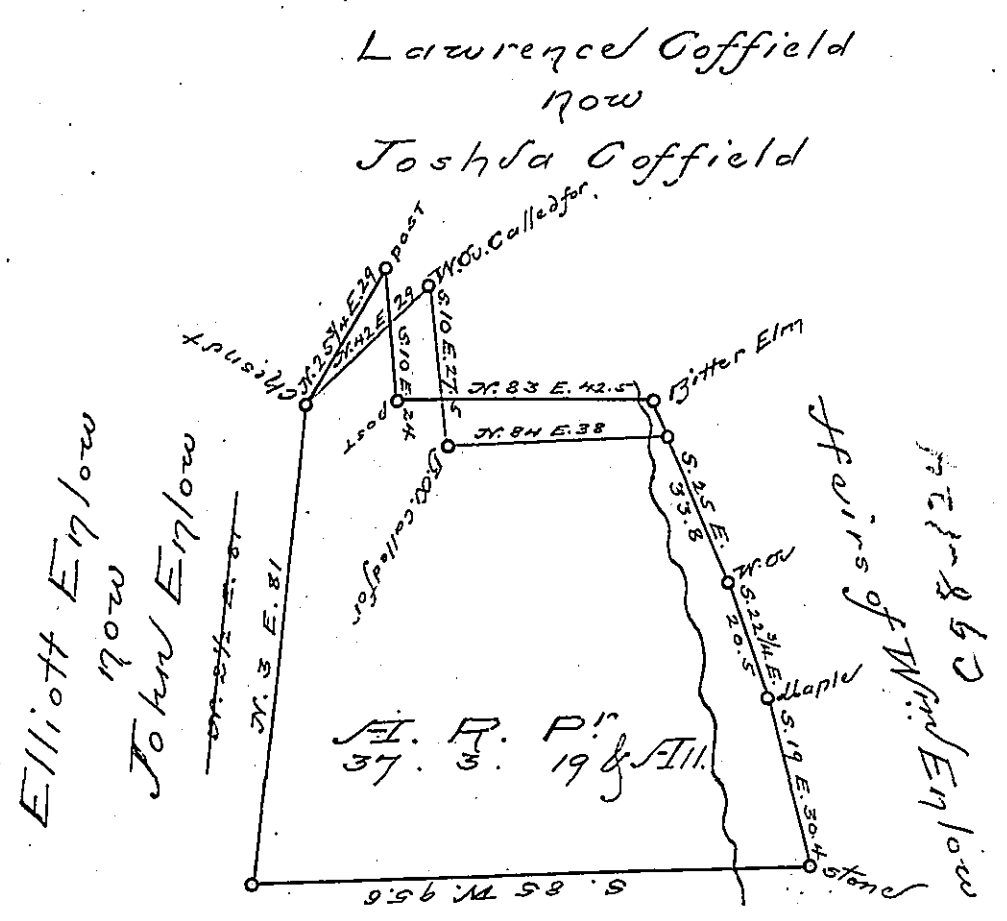 Lawrence Coffield
now
Joshua Coffield
Post
W.O. Called for.
N. 25 3/4 E. 29
N. 42 E. 29
Chesnut
S. 10 E. 24
S. 10 E. 27.5
Post
N. 83 E. 42.5
Bitter Elm
N. 84 E. 38
B.O. Called for
S. 25 E.
33.8
W.O.
S. 22 3/4 E.
20.5
Maple
S. 19 E. 30.4
Stone
S. 85 W. 95.6
N. 3 E. 81
N. 2 1/2 E. 81
Elliott Enlow
now
John Enlow
Heirs of Wm. Enlow
A. R. Pr.
37. 3. 19 & All.